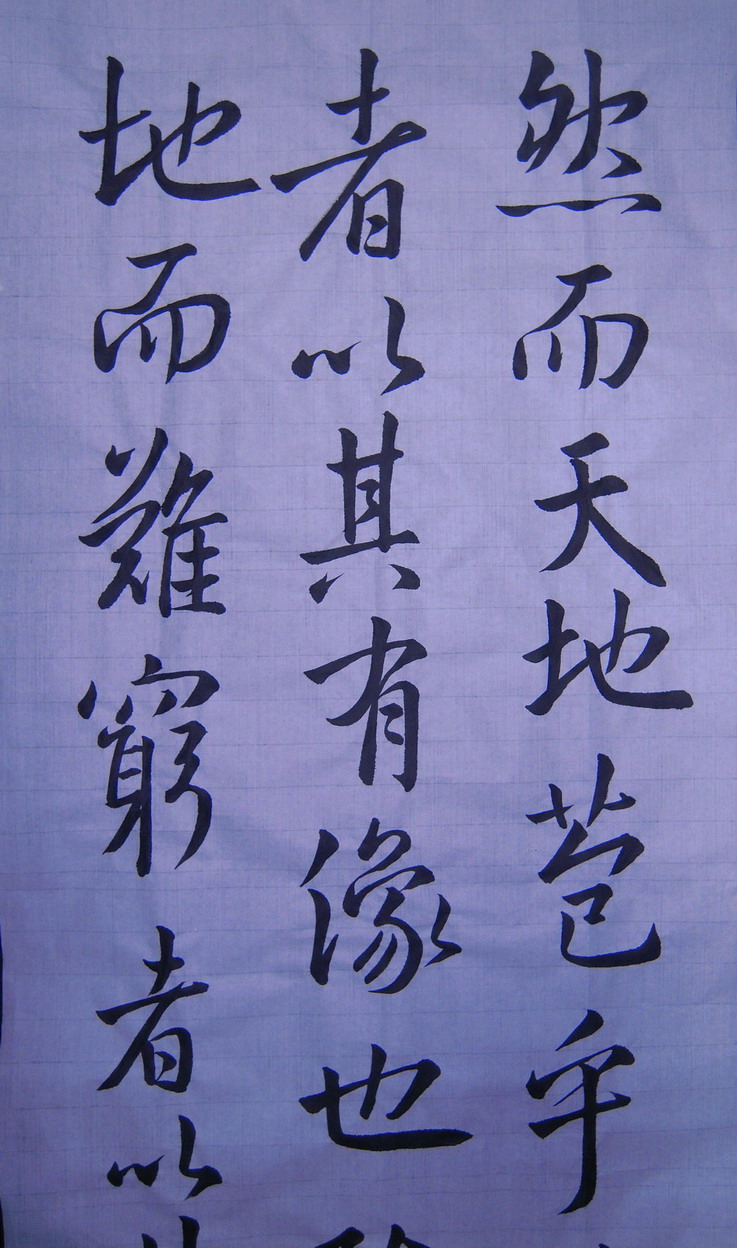 然而天地苞乎
者以其有像也
地而難窮者以